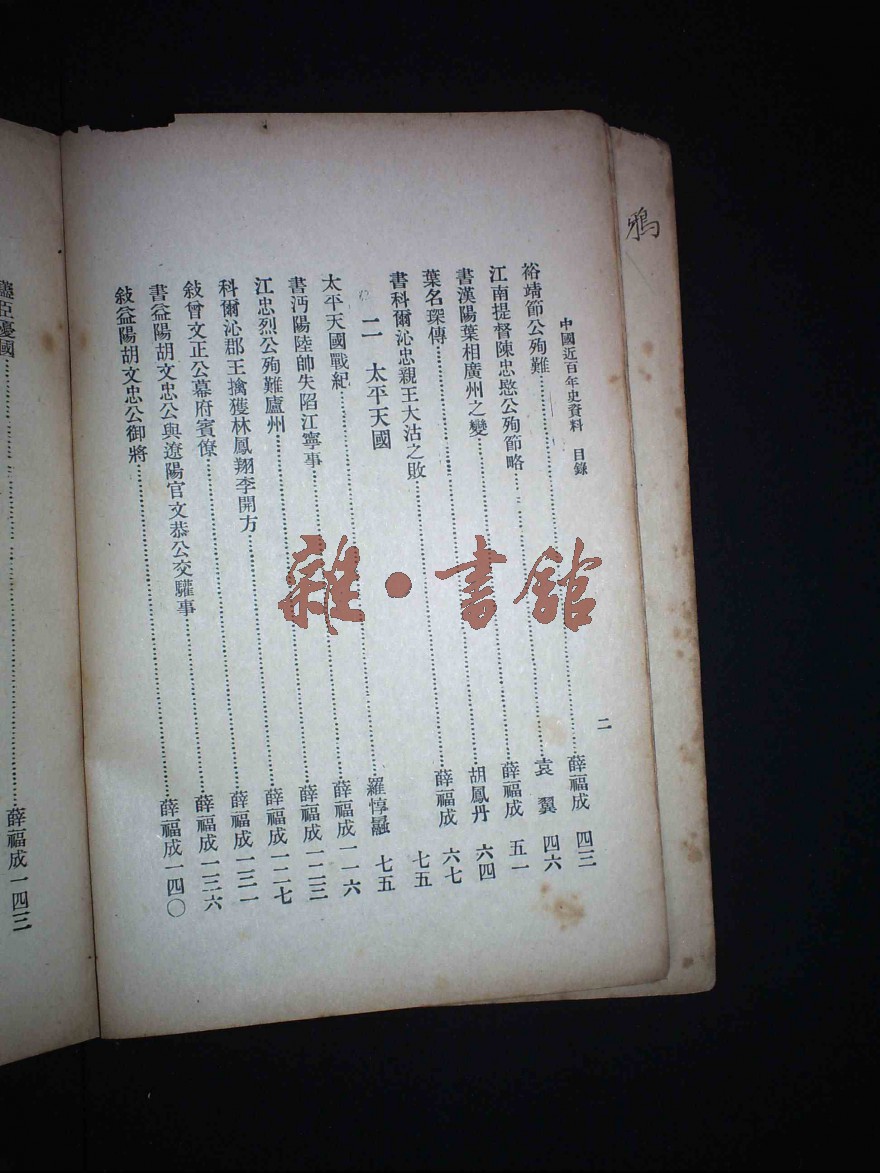 鴉
中國近百年史資料　目錄　二
裕靖節公殉難……薛福成　四三
江南提督陳忠愍公殉節略……袁翼　四六
書漢陽葉相廣州之變……薛福成　五一
葉名琛傳……胡鳳丹　六四
書科爾沁忠親王大沽之敗……薛福成　六七
二　太平天國　七五
太平天國戰紀……羅惇曧　七五
書沔陽陸帥失陷江寧事……薛福成　一一六
江忠烈公殉難廬州……薛福成　一二三
科爾沁郡王擒獲林鳳翔李開方……薛福成　一二七
敍曾文正公幕府賓僚……薛福成　一三一
書益陽胡文忠公與遼陽官文恭公交驩事……薛福成　一三六
敍益陽胡文忠公御將……薛福成　一四〇
藎臣憂國……薛福成　一四三
雜·書館